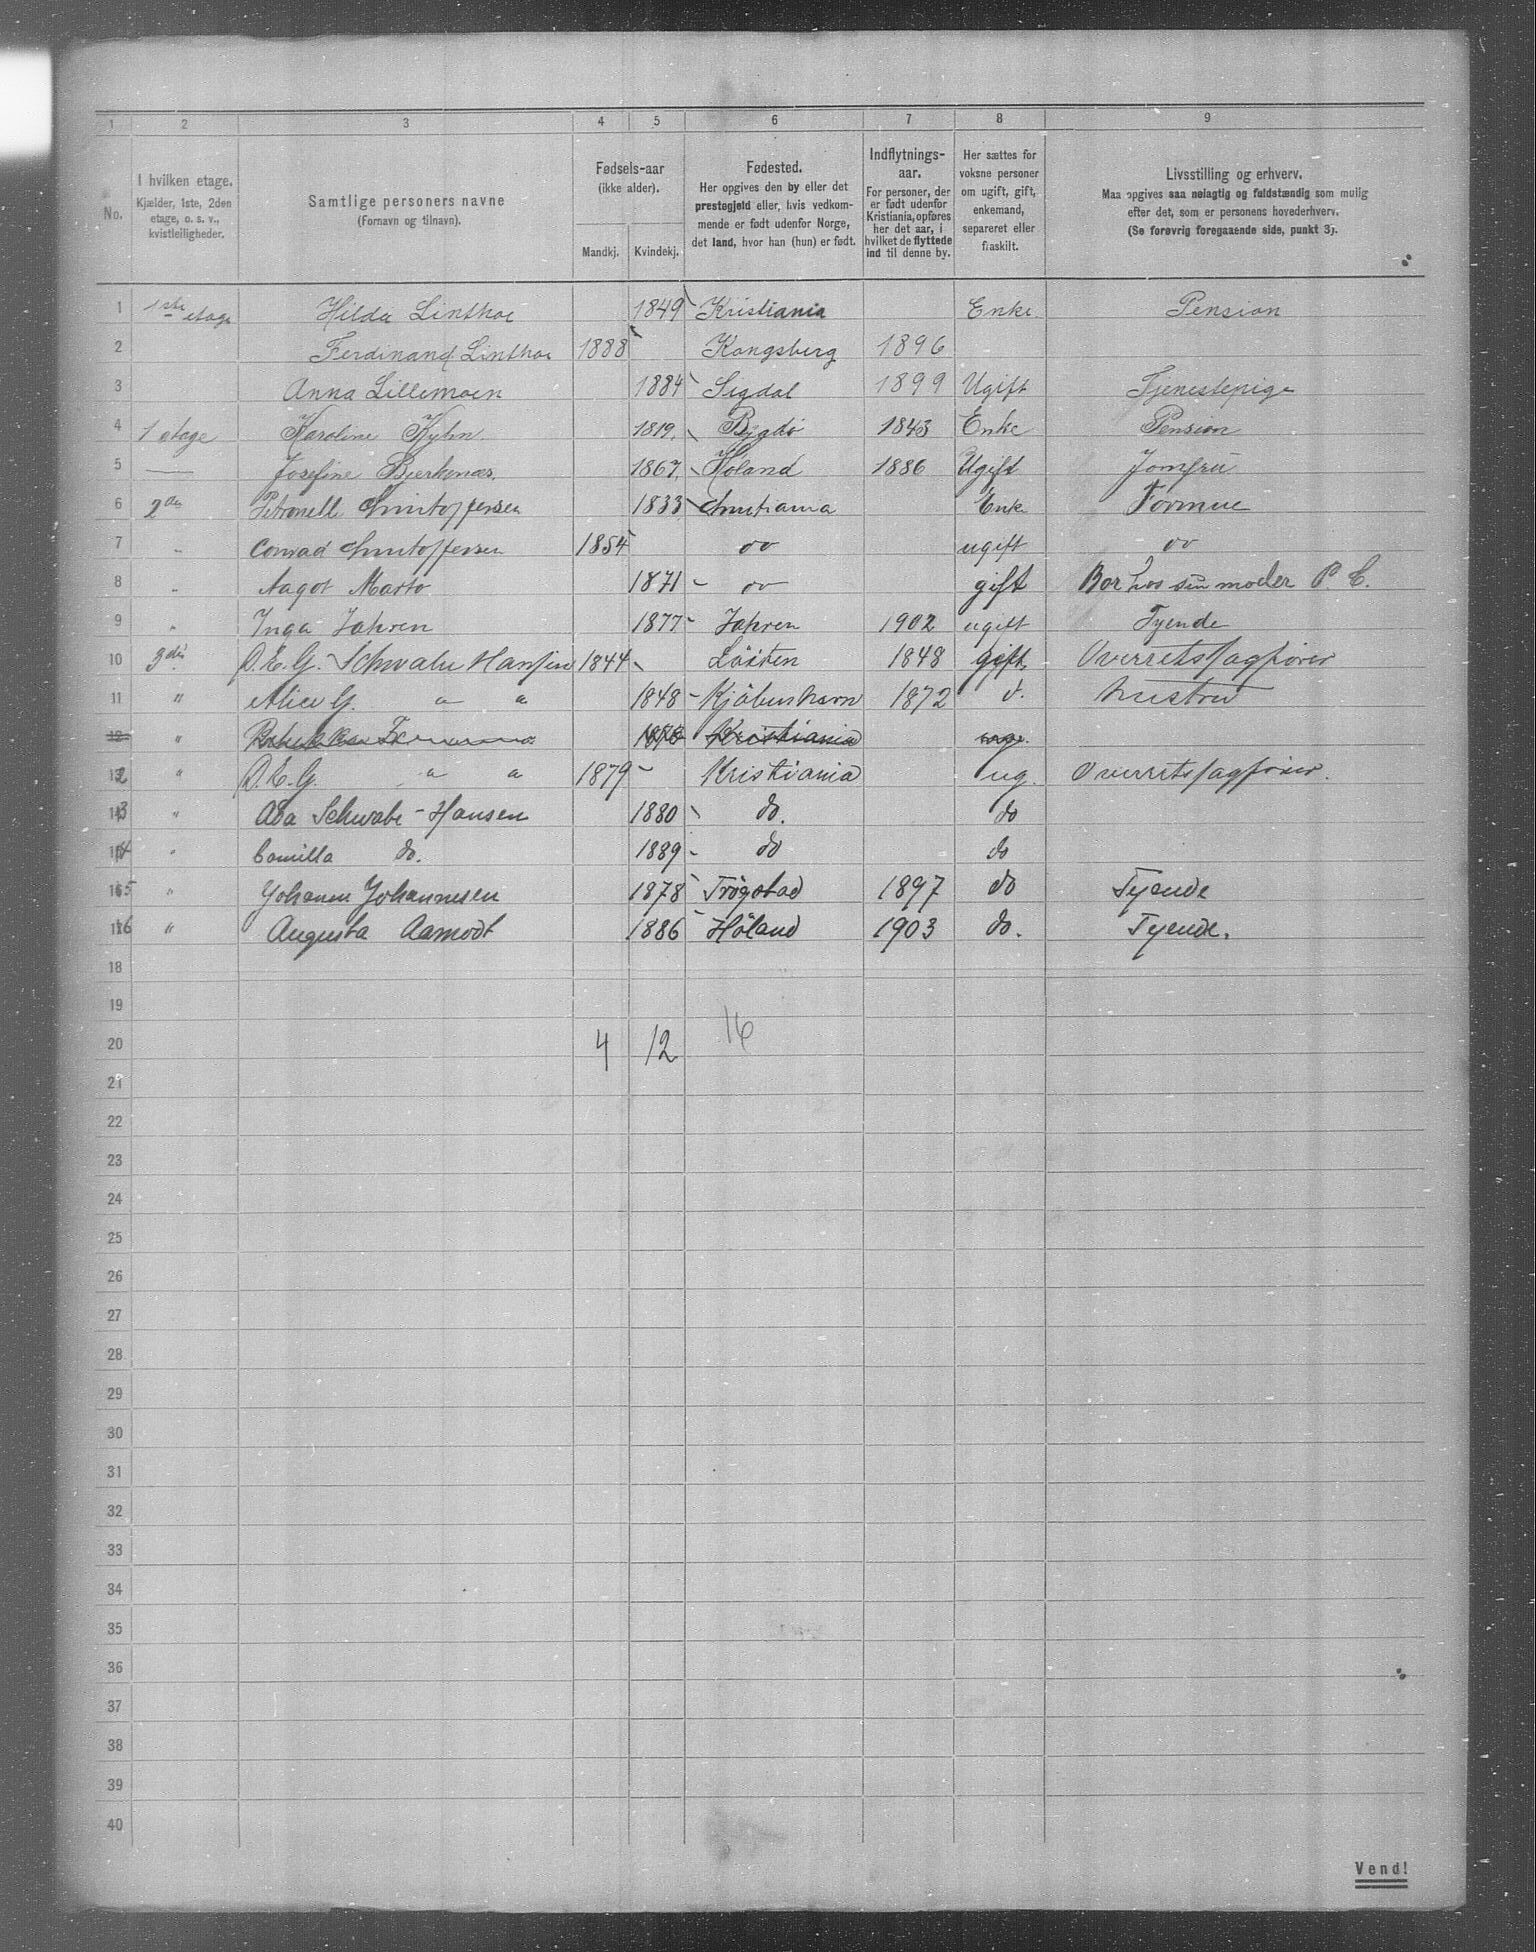 1 2 3 4 5 6 7 8 9
No. I hvilken etage. Kjælder, 1ste, 2den etage, o. s. v., kvistleiligheder. Samtlige personers navne (Fornavn og tilnavn). Fødsels-aar (ikke alder). Mandkj. Kvindekj. Fødested. Her opgives den by eller det prestegjeld eller, hvis vedkommende er født udenfor Norge, det land, hvor han (hun) er født. Indflytnings-aar. For personer, der er født udenfor Kristiania, opføres her det aar, i hvilket de flyttede ind til denne by. Her sættes for voksne personer om ugift, gift, enkemand, separeret eller fraskilt. Livsstilling og erhverv. Maa opgives saa nøiagtig og fuldstændig som mulig efter det, som er personens hovederhverv. (Se forøvrig foregaaende side, punkt 3).
1 1ste etage Hilda Linthoe 1849 Kristiania Enke Pension
2 Ferdinand Linthoe 1888 Kongsberg 1896
3 Anna Lillemoen 1884 Sigdal 1899 Ugift Tjenestepige
4 1 etage Karoline Kyhn 1819 Bygdö 1843 Enke Pension
5 — Josefine Bjerkenæs 1867 Höland 1886 Ugift Jomfru
6 2den Petronell Christoffersen 1833 Christiania Enke Formue
7 " Conrad Christoffersen 1854 do ugift do
8 " Aagot Marto 1871 do gift Bor hos sin moder P. C.
9 " Inga Jahren 1877 Jahren 1902 ugift Tyende
10 3die O. E. G. Schwabe Hansen 1844 Löiten 1848 gift Overretssagförer
11 " Alice G. " " 1848 Kjöbenhavn 1872 d. hustru
12 " Kristiania
12 " O. E. G. " " 1879 Kristiania ug. Overretssagförer.
13 " Ada Schwabe-Hansen 1880 do. do
14 " Camilla do. 1889 do do
15 " Johanne Johannesen 1878 Trögstad 1897 do Tyende
16 " Augusta Aamodt 1886 Höland 1903 do. Tyende.
18
19
20 4 12 16
21
22
23
24
25
26
27
28
29
30
31
32
33
34
35
36
37
38
39
40
Vend!